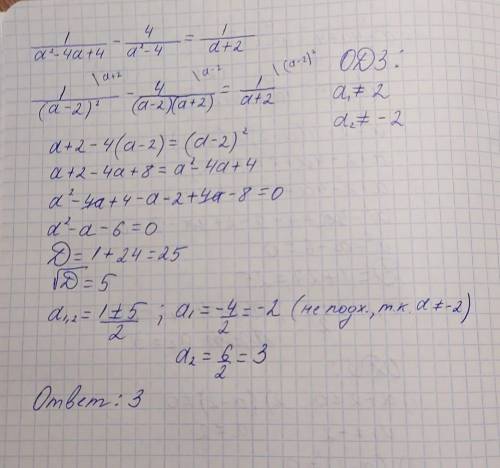 1/(a²-4a+4) - 4/(a²-4) = 1/(a+2)
1/(a-2)² \a+2 - 4/((a-2)(a+2)) \a-2 = 1/(a+2) \(a-2)²
ОДЗ:
a₁ ≠ 2
a₂ ≠ -2
a+2-4(a-2) = (a-2)²
a+2-4a+8 = a²-4a+4
a²-4a+4-a-2+4a-8=0
a²-a-6=0
D=1+24=25
√D=5
a₁,₂ = (1±5)/2 ; a₁ = -4/2 = -2 (не подх., т.к. a≠-2)
a₂ = 6/2 = 3
Ответ: 3